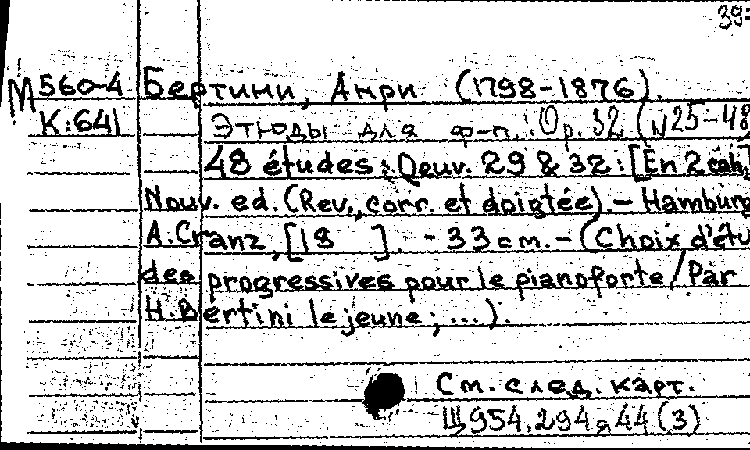 39=
М 560-4 Бертини, Анри (1798-1876).
К:641 Этюды для ф-п.: Op. 32 (N25-48
48 études: Oeuv. 29 & 32: [En 2 cah.]
Nouv. ed. (Rev., corr. et doigtée).- Hamburg
A. Cranz, [18 ]. - 33 cm. - (Choix d'étu
des progressives pour le pianoforte / Par
H. Bertini le jeune; ...).
См. след. карт.
Щ954.294я44(3)